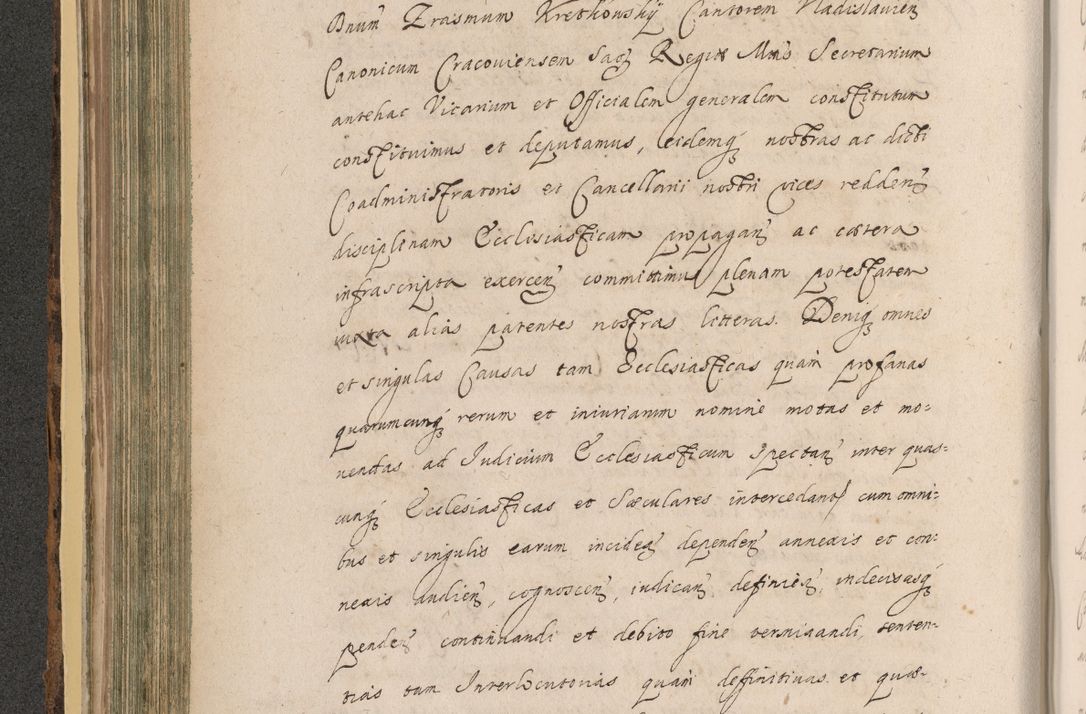 Dnum Erasmum Kretkousky Cantorem Vladislauien
Canonicum Cracouiensem Sacę Regię Mtis Secretarium
antehac Vicarium et Officialem generalem constitutum
constituimus et deputamus, eidemqȝ nostras ac dicti
Coadministratoris et Cancellarii nostri vices reddenȝ
disciplinam Ecclesiasticam propaganȝ ac cætera
infrascripta exercenȝ committimus plenam potestatem
iuxta alias patentes nostras litteras. Deniqȝ omnes
et singulas Causas tam Ecclesiasticas quam profanas
quarumcunqȝ rerum et iniuriarum nomine motas et mo:
uendas ad Iudicium Ecclesiasticum spectanȝ inter quas:
cunqȝ Ecclesiasticas et Sæculares intercedant cum omni:
bus et singulis earum incidenȝ dependenȝ annexis et con:
nexis audienȝ, cognoscenȝ, iudicanȝ definienȝ, indecisasqȝ
pendenȝ continuandi et debito fine terminandi, senten:
tias tam Interlocutorias quam deffinitiuas et quæ: